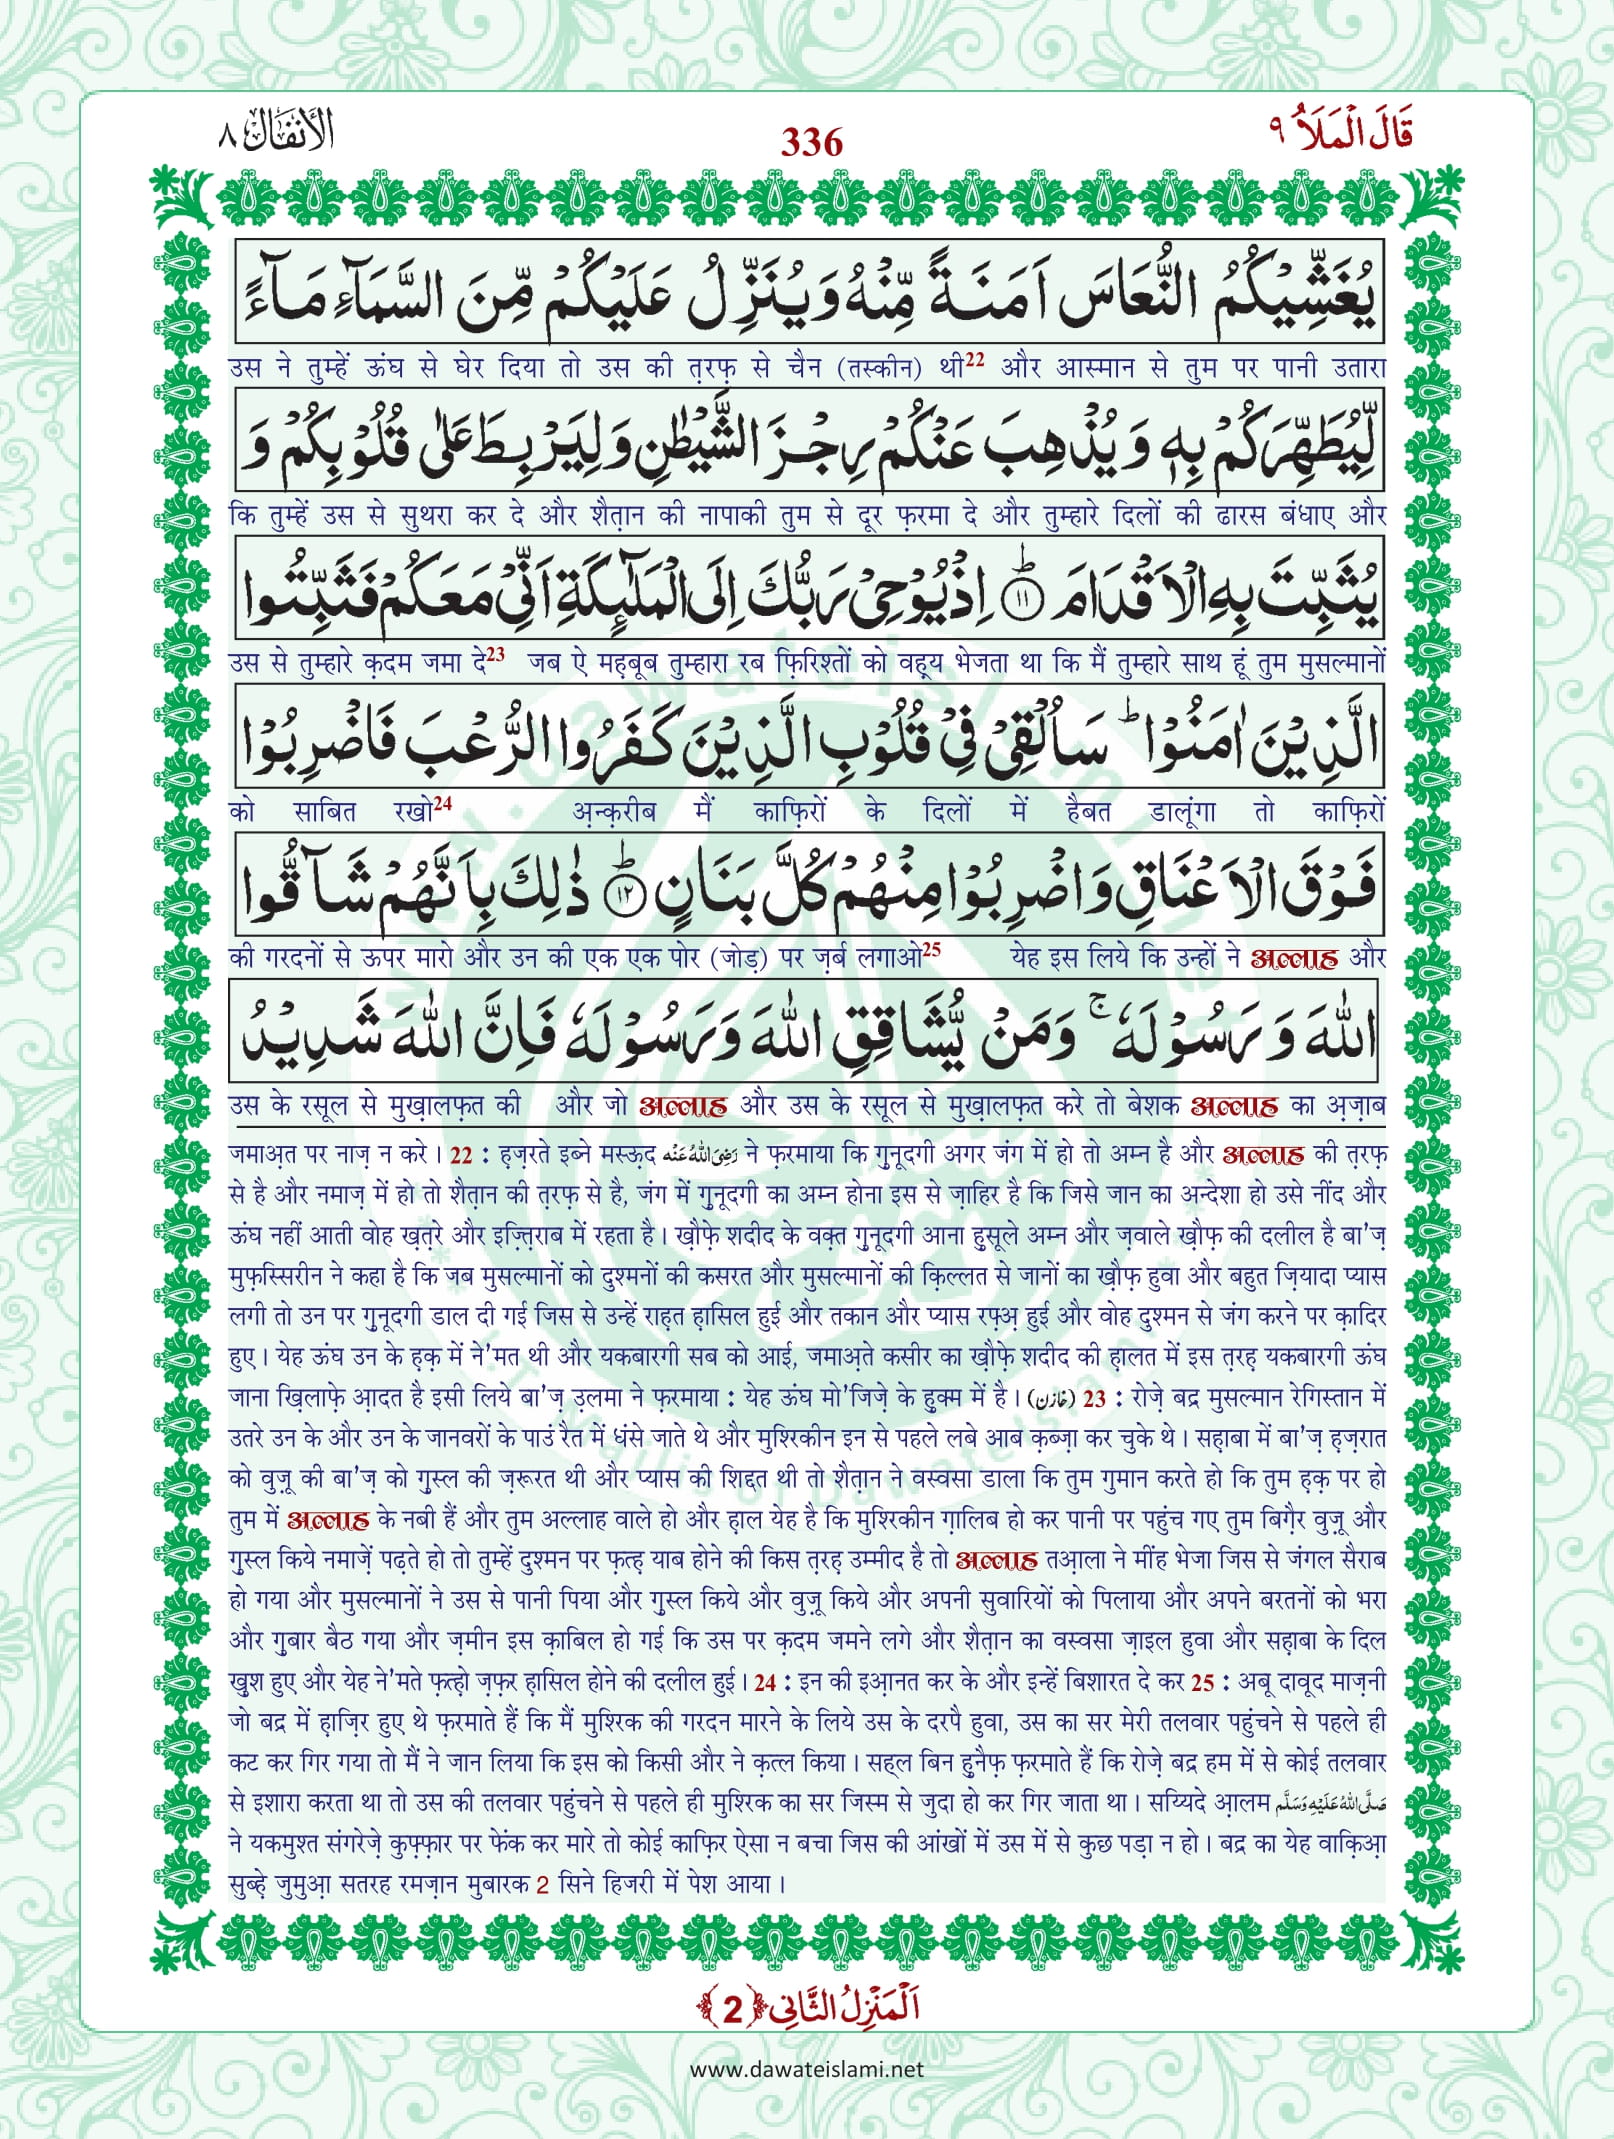 قَالَ الْمَلَاُ ۹
336
الْاَنْفَال ۸
يُغَشِّيْكُمُ النُّعَاسَ اَمَنَةً مِّنْهُ وَيُنَزِّلُ عَلَيْكُمْ مِّنَ السَّمَآءِ مَآءً
उस ने तुम्हें ऊंघ से घेर दिया तो उस की त़रफ़ से चैन (तस्कीन) थी22 और आस्मान से तुम पर पानी उतारा
لِّيُطَهِّرَكُمْ بِهٖ وَيُذْهِبَ عَنْكُمْ رِجْزَ الشَّيْطٰنِ وَلِيَرْبِطَ عَلٰى قُلُوْبِكُمْ وَ
कि तुम्हें उस से सुथरा कर दे और शैत़ान की नापाकी तुम से दूर फ़रमा दे और तुम्हारे दिलों की ढारस बंधाए और
يُثَبِّتَ بِهِ الْاَقْدَامَ ؕ ۱۱ اِذْ يُوْحِيْ رَبُّكَ اِلَى الْمَلٰٓىِٕكَةِ اَنِّيْ مَعَكُمْ فَثَبِّتُوا
उस से तुम्हारे क़दम जमा दे23 जब ऐ मह़बूब तुम्हारा रब फ़िरिश्तों को वह़्य भेजता था कि मैं तुम्हारे साथ हूं तुम मुसल्मानों
الَّذِيْنَ اٰمَنُوْا ؕ سَاُلْقِيْ فِيْ قُلُوْبِ الَّذِيْنَ كَفَرُوا الرُّعْبَ فَاضْرِبُوْا
को साबित रखो24 अ़न्क़रीब मैं काफ़िरों के दिलों में हैबत डालूंगा तो काफ़िरों
فَوْقَ الْاَعْنَاقِ وَاضْرِبُوْا مِنْهُمْ كُلَّ بَنَانٍ ؕ ۱۲ ذٰلِكَ بِاَنَّهُمْ شَآقُّوا
की गरदनों से ऊपर मारो और उन की एक एक पोर (जोड़) पर ज़र्ब लगाओ25 येह इस लिये कि उन्हों ने अल्लाह और
اللّٰهَ وَرَسُوْلَهٗ ۚ وَمَنْ يُّشَاقِقِ اللّٰهَ وَرَسُوْلَهٗ فَاِنَّ اللّٰهَ شَدِيْدُ
उस के रसूल से मुख़ालफ़त की और जो अल्लाह और उस के रसूल से मुख़ालफ़त करे तो बेशक अल्लाह का अ़ज़ाब
जमाअ़त पर नाज़ न करे। 22 : ह़ज़रते इब्ने मस्ऊ़द رَضِىَ اللّٰهُ عَنْه ने फ़रमाया कि ग़ुनूदगी अगर जंग में हो तो अम्न है और अल्लाह की त़रफ़
से है और नमाज़ में हो तो शैत़ान की त़रफ़ से है, जंग में ग़ुनूदगी का अम्न होना इस से ज़ाहिर है कि जिसे जान का अन्देशा हो उसे नींद और
ऊंघ नहीं आती वोह ख़त़रे और इज़्त़िराब में रहता है। ख़ौफ़े शदीद के वक़्त ग़ुनूदगी आना हुसूले अम्न और ज़वाले ख़ौफ़ की दलील है बा'ज़
मुफ़स्सिरीन ने कहा है कि जब मुसल्मानों को दुश्मनों की कसरत और मुसल्मानों की क़िल्लत से जानों का ख़ौफ़ हुवा और बहुत ज़ियादा प्यास
लगी तो उन पर ग़ुनूदगी डाल दी गई जिस से उन्हें राह़त ह़ासिल हुई और तकान और प्यास रफ़्अ़ हुई और वोह दुश्मन से जंग करने पर क़ादिर
हुए। येह ऊंघ उन के ह़क़ में ने'मत थी और यकबारगी सब को आई, जमाअ़ते कसीर का ख़ौफ़े शदीद की ह़ालत में इस त़रह़ यकबारगी ऊंघ
जाना ख़िलाफ़े आ़दत है इसी लिये बा'ज़ उ़लमा ने फ़रमाया : येह ऊंघ मो'जिज़े के हुक्म में है। (خازن) 23 : रोज़े बद्र मुसल्मान रेगिस्तान में
उतरे उन के और उन के जानवरों के पाउं रैत में धंसे जाते थे और मुश्रिकीन इन से पहले लबे आब क़ब्ज़ा कर चुके थे। सह़ाबा में बा'ज़ ह़ज़रात
को वुज़ू की बा'ज़ को ग़ुस्ल की ज़रूरत थी और प्यास की शिद्दत थी तो शैत़ान ने वस्वसा डाला कि तुम गुमान करते हो कि तुम ह़क़ पर हो
तुम में अल्लाह के नबी हैं और तुम अल्लाह वाले हो और ह़ाल येह है कि मुश्रिकीन ग़ालिब हो कर पानी पर पहुंच गए तुम बिग़ैर वुज़ू और
ग़ुस्ल किये नमाज़ें पढ़ते हो तो तुम्हें दुश्मन पर फ़त्ह़ याब होने की किस त़रह़ उम्मीद है तो अल्लाह तआ़ला ने मींह भेजा जिस से जंगल सैराब
हो गया और मुसल्मानों ने उस से पानी पिया और ग़ुस्ल किये और वुज़ू किये और अपनी सुवारियों को पिलाया और अपने बरतनों को भरा
और ग़ुबार बैठ गया और ज़मीन इस क़ाबिल हो गई कि उस पर क़दम जमने लगे और शैत़ान का वस्वसा ज़ाइल हुवा और सह़ाबा के दिल
ख़ुश हुए और येह ने'मते फ़त्ह़ो ज़फ़र ह़ासिल होने की दलील हुई। 24 : इन की इआ़नत कर के और इन्हें बिशारत दे कर 25 : अबू दावूद माज़नी
जो बद्र में ह़ाज़िर हुए थे फ़रमाते हैं कि मैं मुश्रिक की गरदन मारने के लिये उस के दरपै हुवा, उस का सर मेरी तलवार पहुंचने से पहले ही
कट कर गिर गया तो मैं ने जान लिया कि इस को किसी और ने क़त्ल किया। सह्ल बिन हुनैफ़ फ़रमाते हैं कि रोज़े बद्र हम में से कोई तलवार
से इशारा करता था तो उस की तलवार पहुंचने से पहले ही मुश्रिक का सर जिस्म से जुदा हो कर गिर जाता था। सय्यिदे आ़लम صَلَّى اللّٰهُ عَلَيْهِ وَسَلَّم
ने यकमुश्त संगरेज़े कुफ़्फ़ार पर फेंक कर मारे तो कोई काफ़िर ऐसा न बचा जिस की आंखों में उस में से कुछ पड़ा न हो। बद्र का येह वाक़िआ़
सुब्ह़े जुमुआ़ सतरह रमज़ान मुबारक 2 सिने हिजरी में पेश आया।
اَلْمَنْزِلُ الثَّانِى ﴿2﴾
www.dawateislami.net